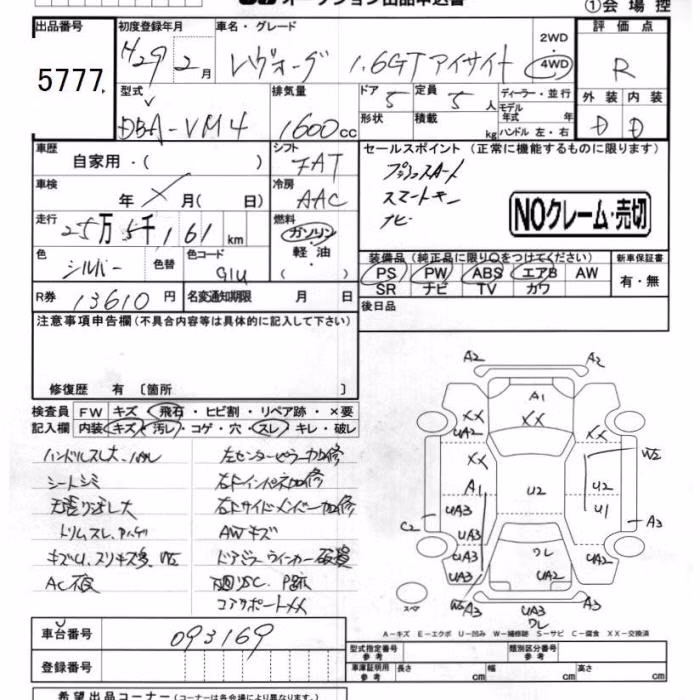 オークション出品申込書
①会場控
出品番号 初度登録年月 車名・グレード 評価点
5777 H29年2月 レヴォーグ 1.6GTアイサイト 2WD 4WD R
型式 排気量 ドア 定員 ディーラー・並行 外装 内装
DBA-VM4 1600cc 5 5人 モデル年式 年 D D
形状 積載 kg ハンドル 左・右
車歴 シフト セールスポイント (正常に機能するものに限ります)
自家用・( ) FAT プッシュスタート
車検 冷房 スマートキー
年 月( 日) AAC ナビ
NOクレーム・売切
走行 燃料
25万5千161km ガソリン・軽油・( )
色 色替 色コード 装備品 (純正品に限り○をつけてください) 新車保証書
シルバー G1U PS PW ABS エアB AW 有・無
SR ナビ TV カワ
R券 13610円 名変通知期限 月 日 後日品
注意事項申告欄(不具合内容等は具体的に記入して下さい)
修復歴 有 [箇所 ]
検査員 FW キズ・飛石・ヒビ割・リペア跡・×要
記入欄 内装 キズ・汚レ・コゲ・穴・スレ・キレ・破レ
左センターピラー加修
シートシミ 右Fインパネ加修
右Fサイドメンバー加修
AWキズ
ドアミラーウインカー破損
コアサポートXX
A2 A2
A1
XX XX
UA2
XX W2
A1 U2 U2
UA3 U1
C2 UA3 A3
UA3 ワレ
UA3 UA2
W3 A3 UA3 A3
スペア ワレ
A-キズ E-エクボ U-凹み W-補修跡 S-サビ C-腐食 XX-交換済
車台番号 093169
登録番号
型式指定番号 参考 類別区分番号 参考
車庫証明用 参考 長さ 幅 高さ
cm cm cm
希望出品コーナー (コーナーは各会場により異なります。)